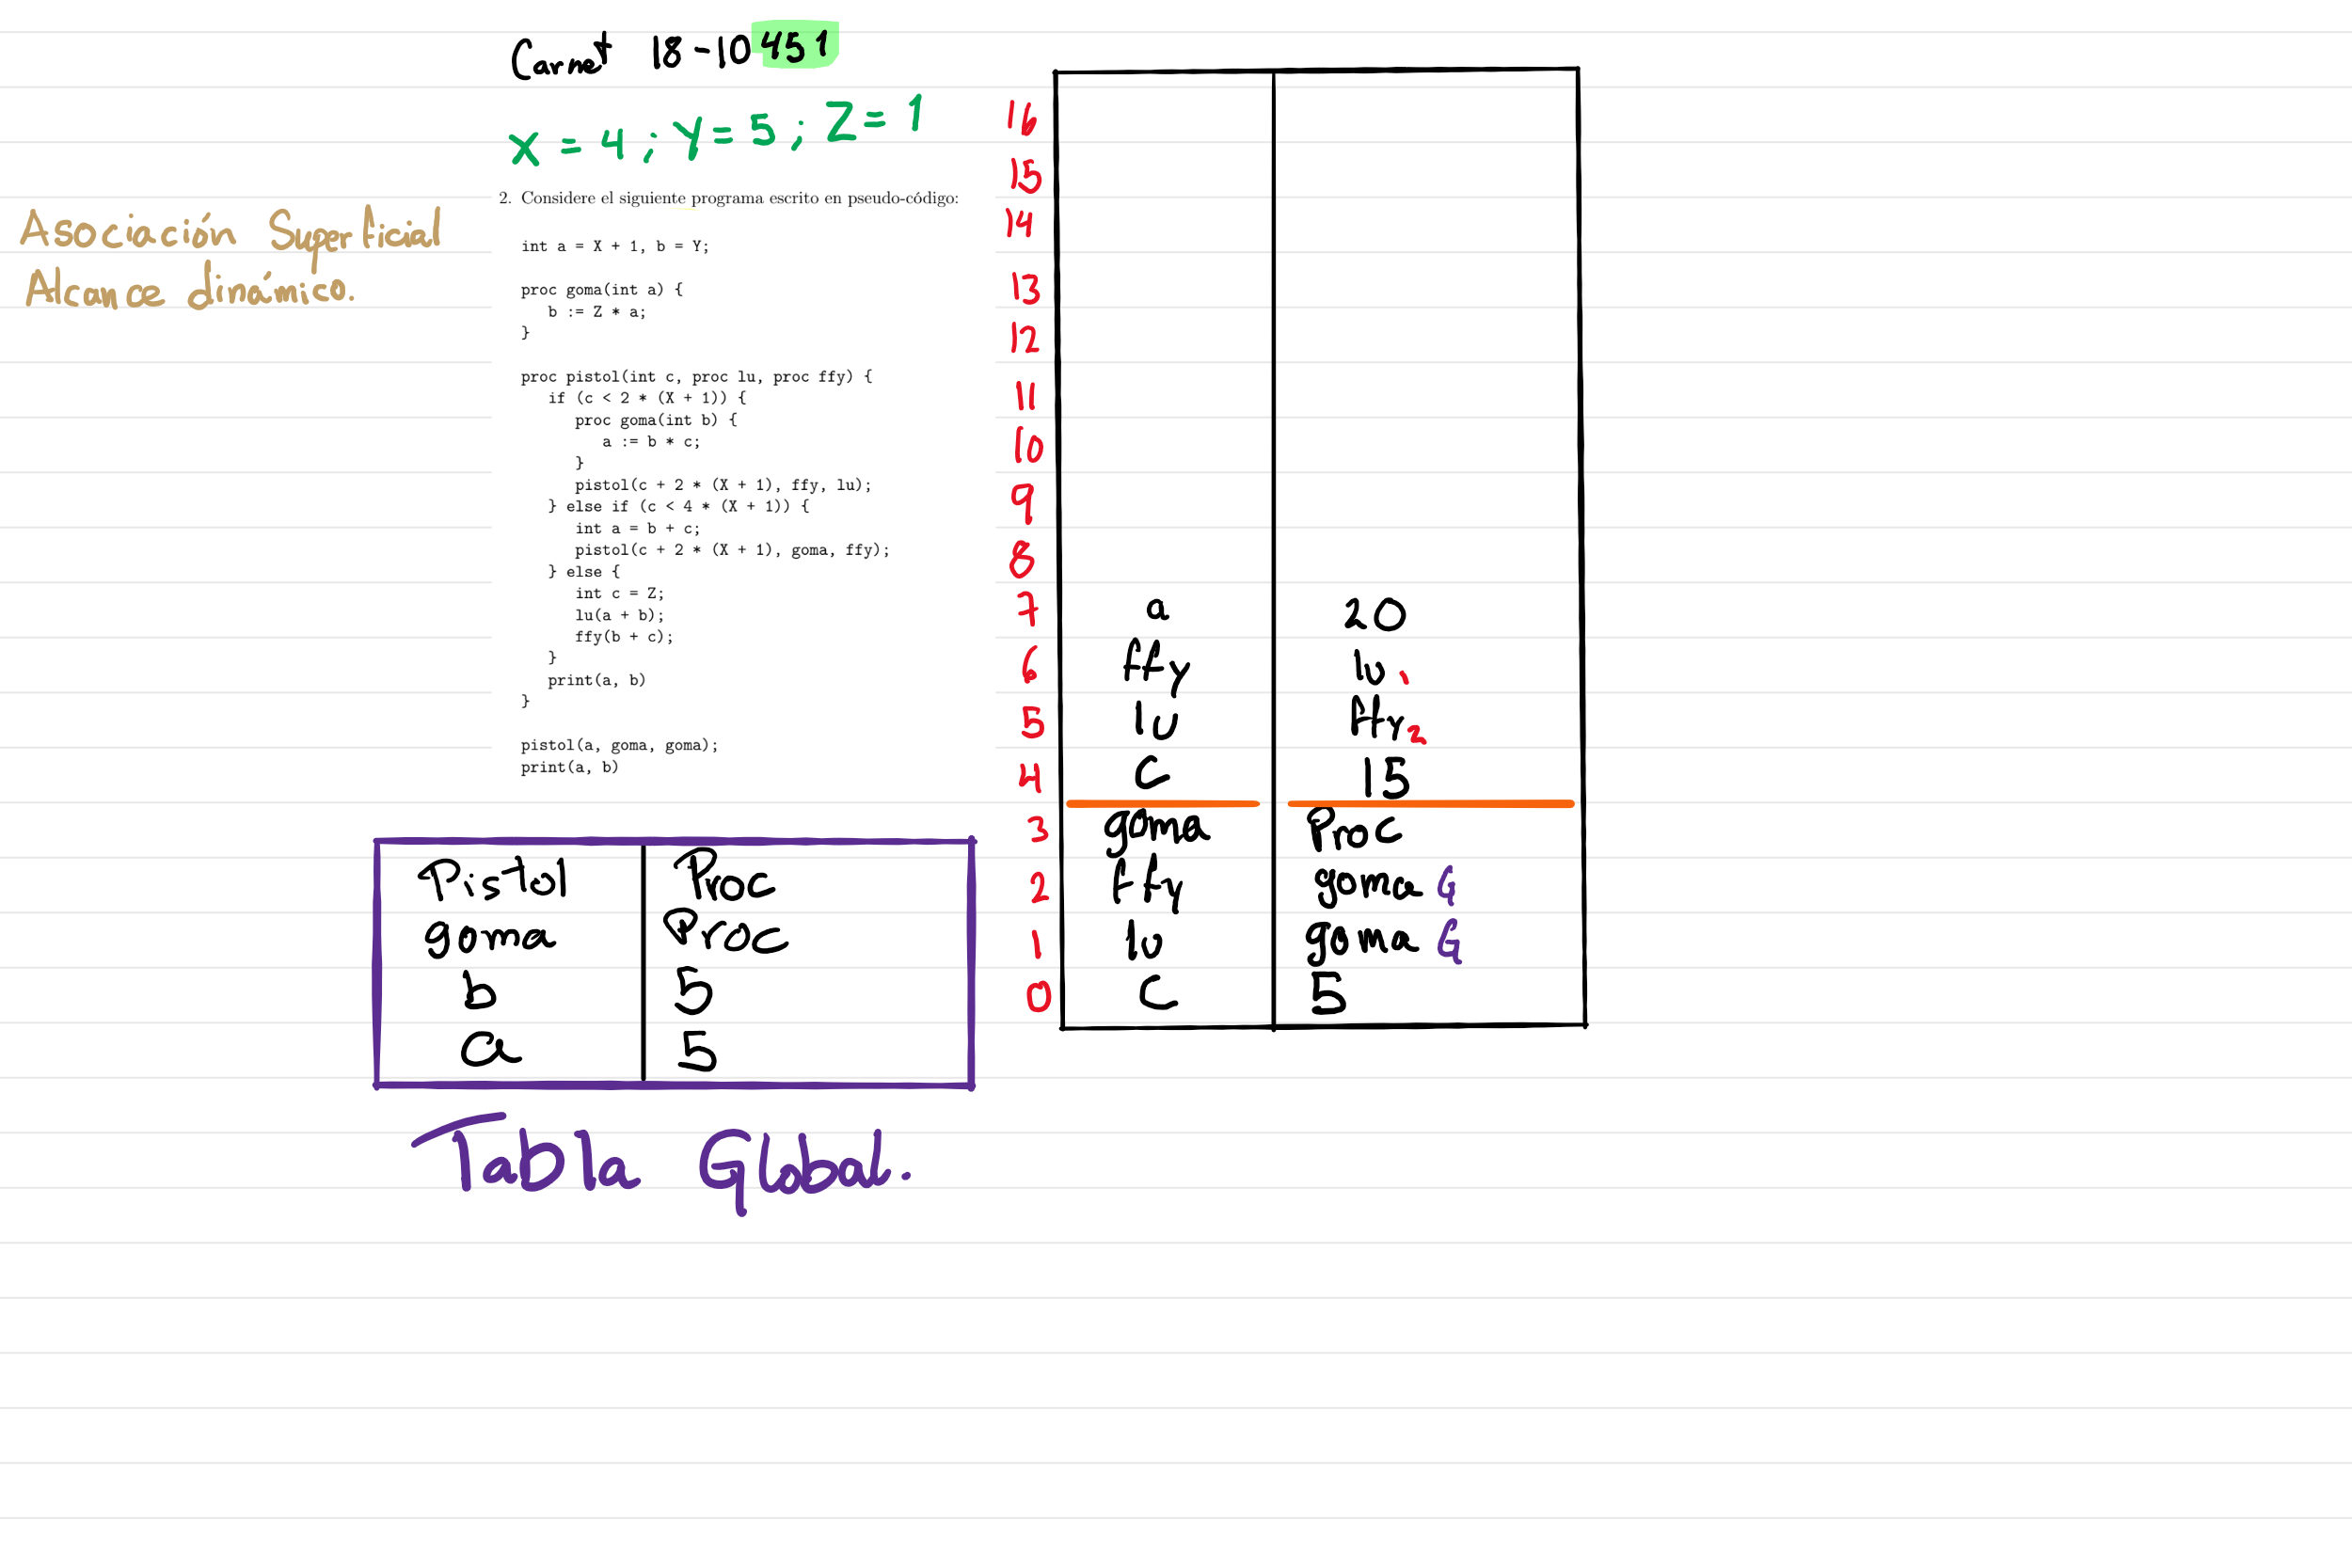 Carnet 18-10451
X = 4 ; Y = 5 ; Z = 1
Asociación Superficial
Alcance dinámico.
2. Considere el siguiente programa escrito en pseudo-código:
int a = X + 1, b = Y;
proc goma(int a) {
b := Z * a;
}
proc pistol(int c, proc lu, proc ffy) {
if (c < 2 * (X + 1)) {
proc goma(int b) {
a := b * c;
}
pistol(c + 2 * (X + 1), ffy, lu);
} else if (c < 4 * (X + 1)) {
int a = b + c;
pistol(c + 2 * (X + 1), goma, ffy);
} else {
int c = Z;
lu(a + b);
ffy(b + c);
}
print(a, b)
}
pistol(a, goma, goma);
print(a, b)
Pistol Proc
goma Proc
b 5
a 5
Tabla Global.
16
15
14
13
12
11
10
9
8
7 a 20
6 ffy lu 1
5 lu ffy 2
4 C 15
3 goma Proc
2 ffy goma G
1 lu goma G
0 C 5